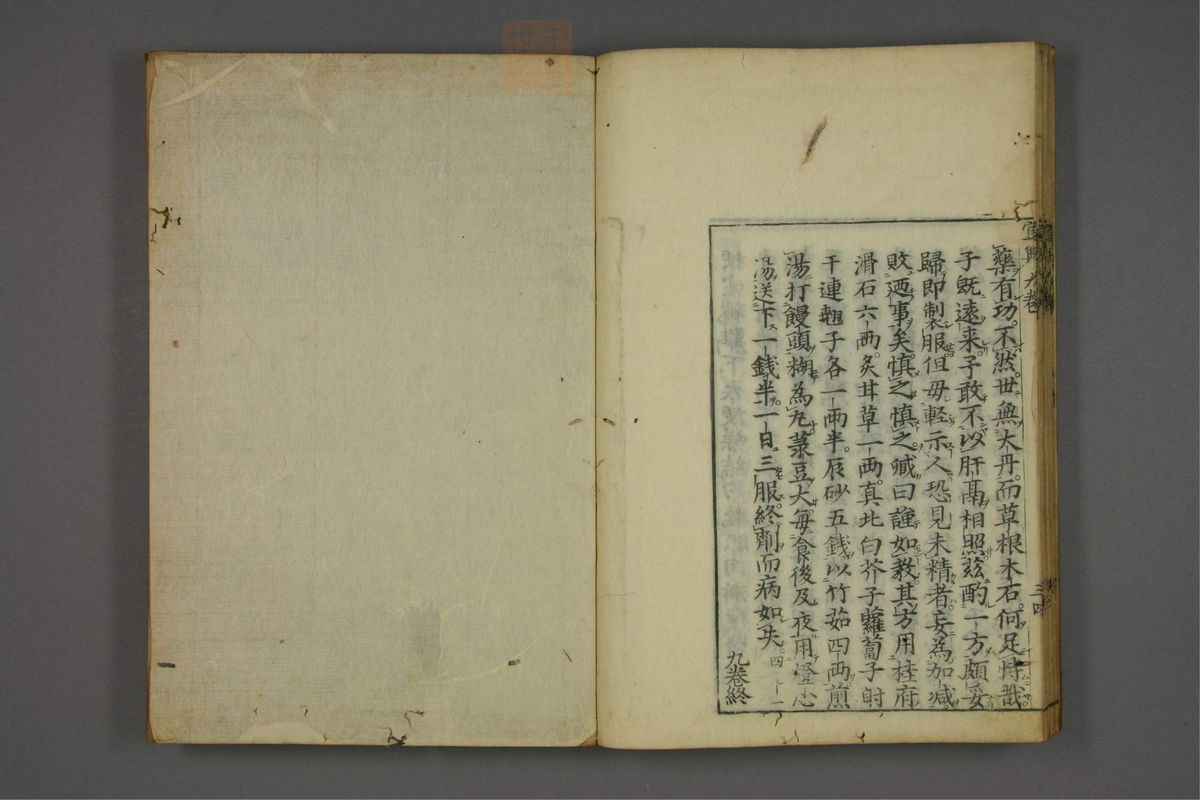 藥有功。不然。世無大丹。而草根木石。何足恃哉
子既遠来。予敢不以肝鬲相照兹酌一方頗妥
歸即制服但毋輕示人恐見未精者妄為加减
敗迺事矣。慎之慎之。臧曰謹如教其方用桂府
滑石六兩。炙甘草一兩。真北白芥子蘿蔔子射
干連翹子各一兩半。辰砂五錢以竹茹四兩煎
湯打饅頭糊為丸菉豆大每食後及夜用燈心
湯送下一錢半一日三服終劑而病如失。四十一
九卷終